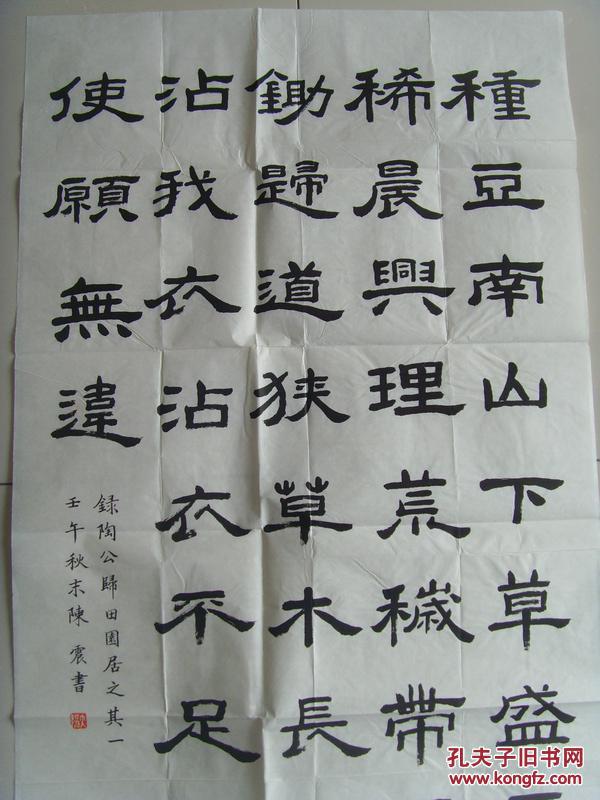 種豆南山下草盛
稀晨興理荒穢帶
鋤歸道狭草木長
沾我衣沾衣不足
使願無違
録陶公歸田園居之其一
壬午秋末陳震書
孔夫子旧书网
www.kongfz.com